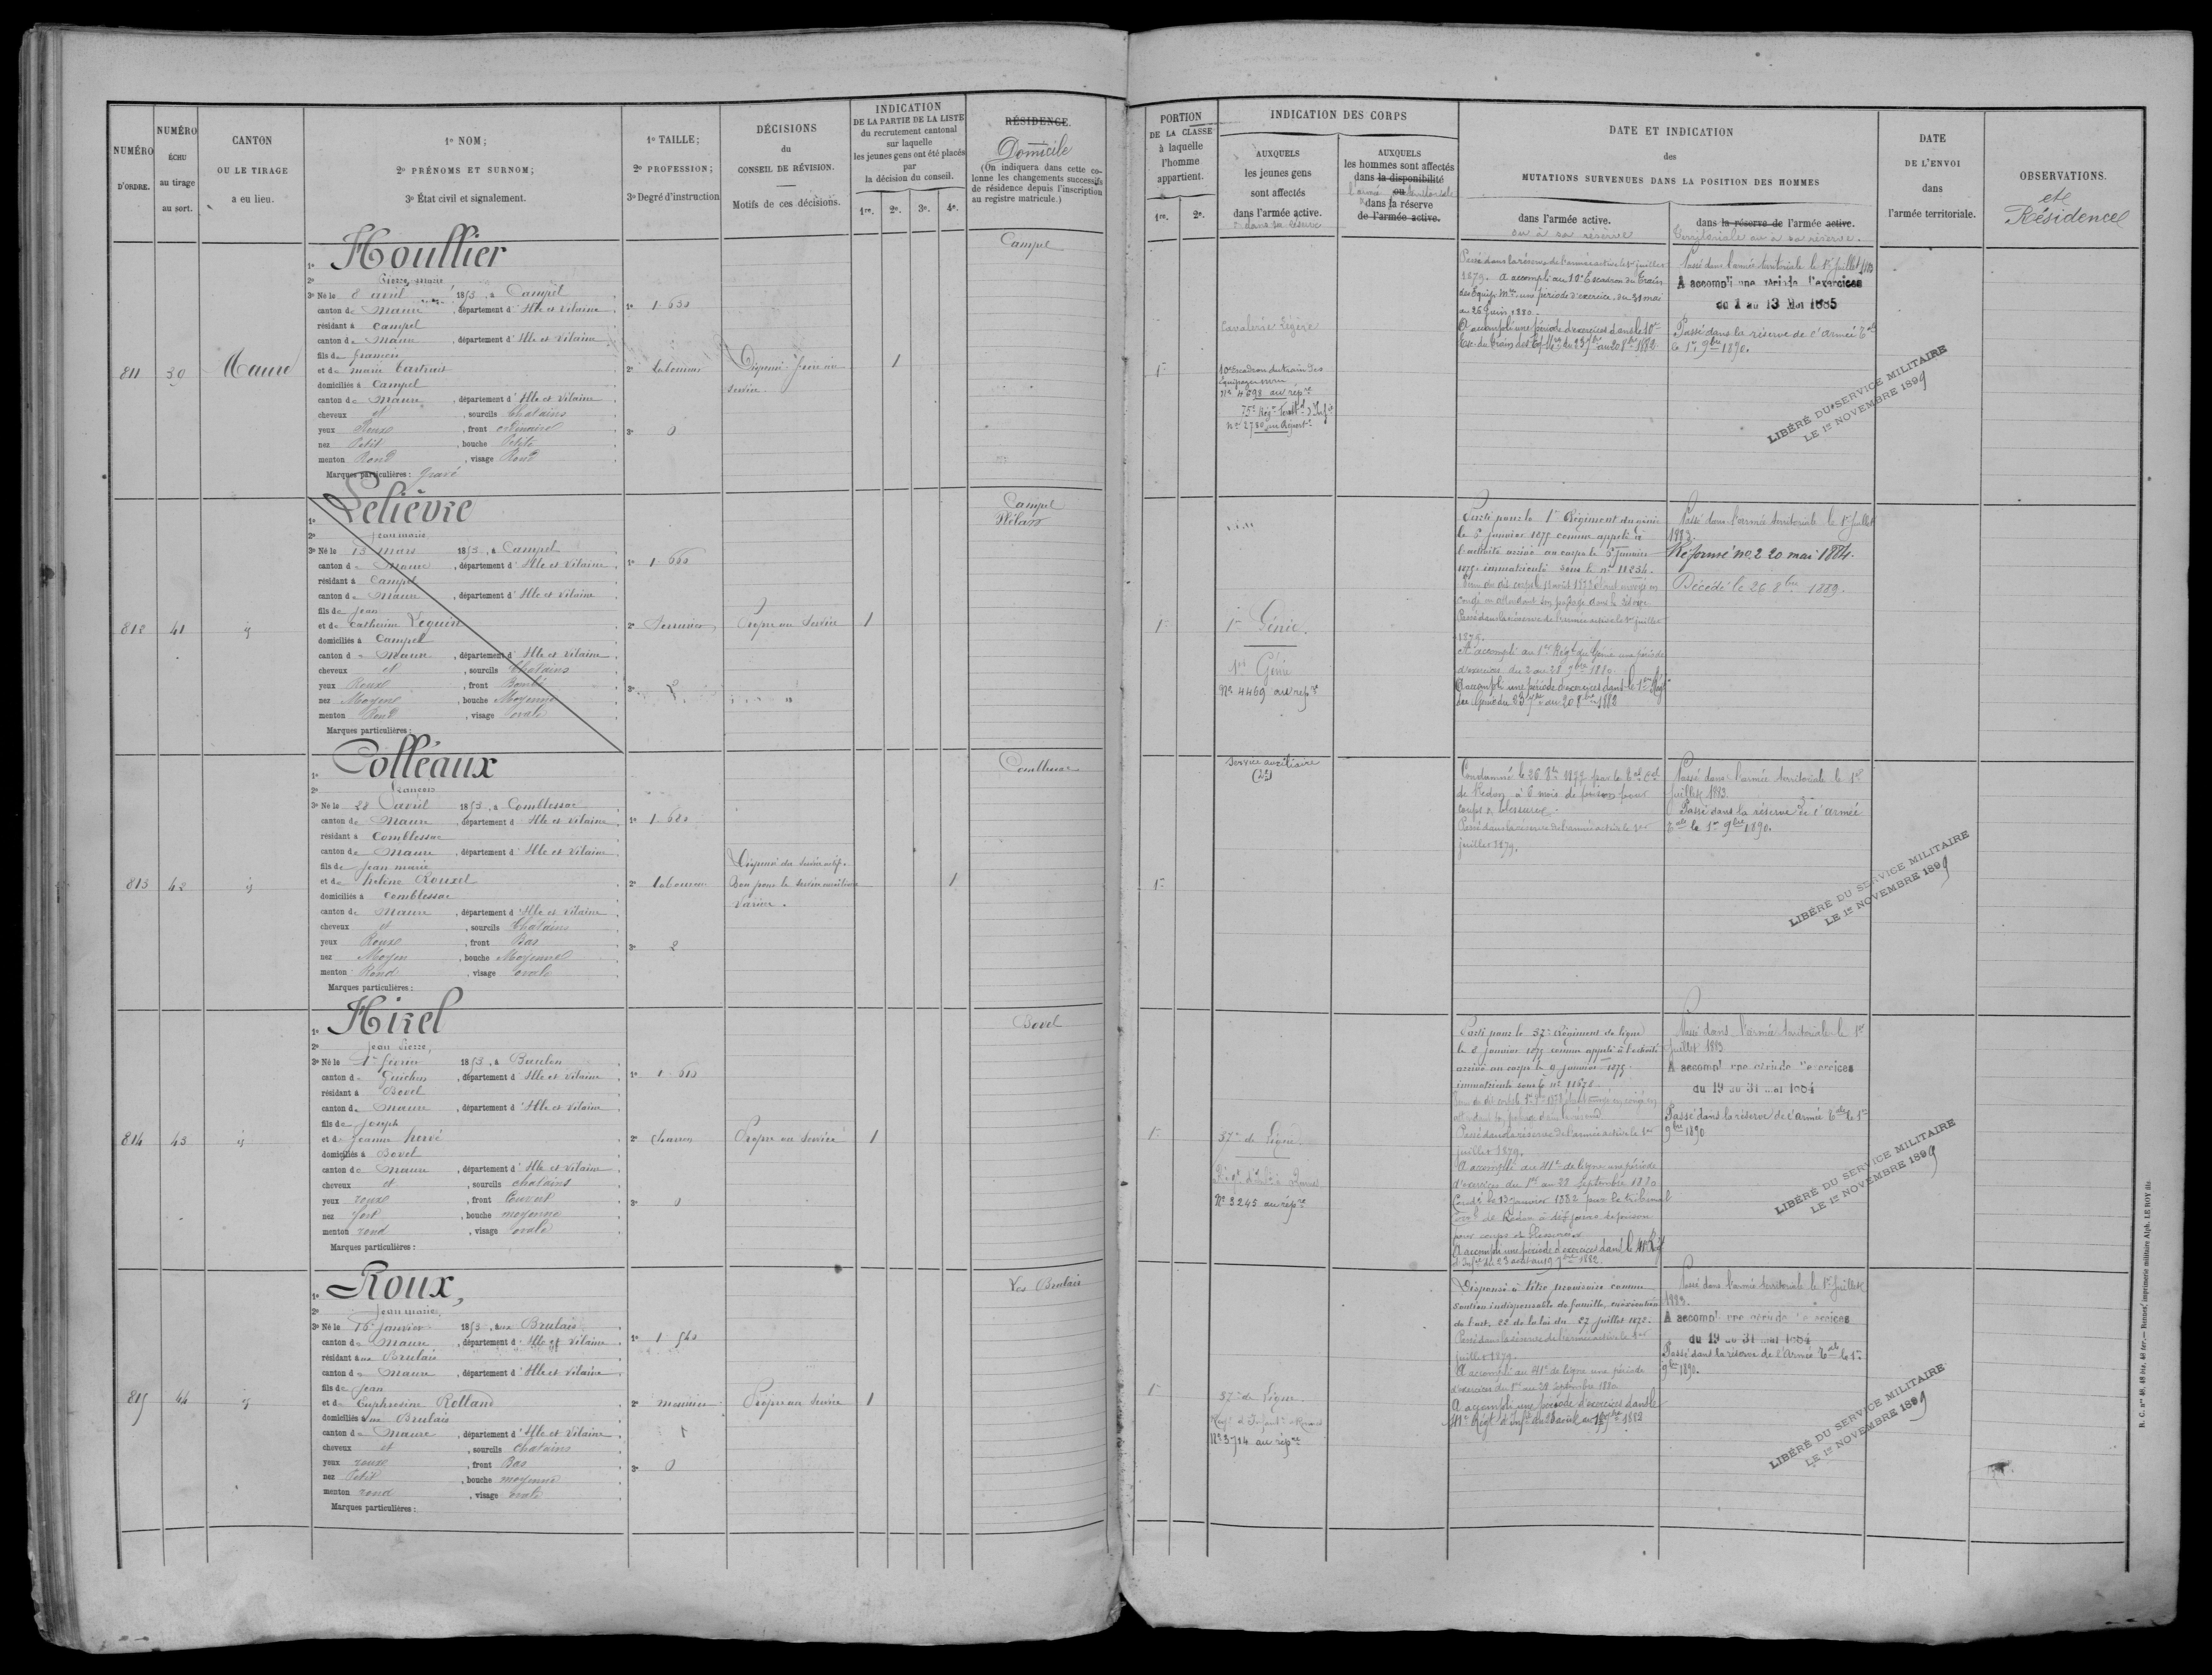 NUMÉRO
D'ORDRE.
NUMÉRO
ÉCHU
au tirage
au sort.
CANTON
OU LE TIRAGE
a eu lieu.
1º NOM;
2º PRÉNOMS ET SURNOM;
3º État civil et signalement.
1º TAILLE;
2º PROFESSION;
3º Degré d'instruction
DÉCISIONS
du
CONSEIL DE RÉVISION.
Motifs de ces décisions.
INDICATION
DE LA PARTIE DE LA LISTE
du recrutement cantonal
sur laquelle
les jeunes gens ont été placés
par
la décision du conseil.
1re. 2e. 3e. 4e.
RÉSIDENCE.
Domicile
(On indiquera dans cette co-
lonne les changements successifs
de résidence depuis l'inscription
au registre matricule.)
PORTION
DE LA CLASSE
à laquelle
l'homme
appartient.
1re. 2e.
INDICATION DES CORPS
AUXQUELS
les jeunes gens
sont affectés
dans l'armée active.
AUXQUELS
les hommes sont affectés
dans la disponibilité
ou
dans la réserve
de l'armée active.
DATE ET INDICATION
des
MUTATIONS SURVENUES DANS LA POSITION DES HOMMES
dans l'armée active.
ou à sa réserve
dans la réserve de l'armée active.
territoriale ou à sa réserve.
DATE
DE L'ENVOI
dans
l'armée territoriale.
OBSERVATIONS.
et
Résidence
811 30 Maure
1º Houllier
2º Pierre Marie
3º Né le 8 avril 1853, à Campel
canton de Maure, département d'Ille et Vilaine
résidant à Campel
canton de Maure, département d'Ille et Vilaine
fils de
et de Marie
domiciliés à Campel
canton de Maure, département d'Ille et Vilaine
cheveux et, sourcils Chatains
yeux Roux, front ordinaire
nez Petit, bouche Petite
menton Rond, visage Rond
Marques particulières: Gravé
1º 1.630
2º Laboureur
3º 0
Dispensé frère au
service
1
Campel
1re
Cavalerie Légère
10e Escadron du train des
Équipages
Nº 4698 au rép
Nº 2780 au Répert
Passé dans la réserve de l'armée active le 1er juillet
1879. A accompli au 10e Escadron du Train
des Équip. Mres une période d'exercice du 31 mai
au 26 juin 1880.
A accompli une période d'exercices dans le 10e
Passé dans l'armée territoriale le 1er juillet 1883
A accompli une période d'exercices
du 1 au 13 Mai 1885
Passé dans la réserve de l'armée Tale
le 1er 9bre 1890.
LIBÉRÉ DU SERVICE MILITAIRE
LE 1er NOVEMBRE 1899
812 41 id
1º Lelièvre
2º Jean Marie
3º Né le 13 mars 1853, à Campel
canton de Maure, département d'Ille et Vilaine
résidant à Campel
canton de Maure, département d'Ille et Vilaine
fils de Jean
et de Catherine Lequin
domiciliés à Campel
canton de Maure, département d'Ille et Vilaine
cheveux et, sourcils Chatains
yeux Roux, front Bombé
nez Moyen, bouche Moyenne
menton Rond, visage ovale
Marques particulières:
1º 1.660
2º
3º
Propre au Service
1
Campel
Plélan
1re
1er Génie.
1er Génie
Nº 4469 au rép
Parti pour le 1er Régiment du génie
le 5 janvier 1875 comme appelé à
l'activité arrivé au corps le 5 janvier
1875 immatriculé sous le nº 11234.
congé en attendant son passage dans la réserve
Passé dans la réserve de l'armée active le 1er juillet
1879.
A accompli au 1er Régt du Génie une période
d'exercices du 2 au 28 9bre 1880.
A accompli une période d'exercices dans le 1er Régt
du Génie du 23 7bre au 20 8bre 1882
Passé dans l'armée territoriale le 1er juillet
1883.
Réformé nº 2 20 mai 1884.
Décédé le 26 8bre 1889.
813 42 id
1º Colléaux
2º François
3º Né le 28 avril 1853, à Comblessac
canton de Maure, département d'Ille et Vilaine
résidant à Comblessac
canton de Maure, département d'Ille et Vilaine
fils de Jean Marie
et de Hélène Rouxel
domiciliés à Comblessac
canton de Maure, département d'Ille et Vilaine
cheveux et, sourcils Chatains
yeux Roux, front Bas
nez Moyen, bouche Moyenne
menton Rond, visage ovale
Marques particulières:
1º 1.680
2º Laboureur
3º 2
Dispensé du service actif.
Bon pour le service auxiliaire
Varices.
1
Comblessac
1re
Service auxiliaire
Condamné le 26 8bre 1877 par le
de Redon à 6 mois de prison pour
coups & blessures
Passé dans la réserve de l'armée active le 1er
juillet 1879.
Passé dans l'armée territoriale le 1er
juillet 1883
Passé dans la réserve de l'armée
Tale le 1er 9bre 1890.
LIBÉRÉ DU SERVICE MILITAIRE
LE 1er NOVEMBRE 1899
814 43 id
1º Hirel
2º Jean Pierre,
3º Né le 1er février 1853, à Baulon
canton de Guichen, département d'Ille et Vilaine
résidant à Bovel
canton de Maure, département d'Ille et Vilaine
fils de Joseph
et de Jeanne Hervé
domiciliés à Bovel
canton de Maure, département d'Ille et Vilaine
cheveux et, sourcils chatains
yeux roux, front Couvert
nez fort, bouche moyenne
menton rond, visage ovale
Marques particulières:
1º 1.610
2º charron
3º 0
Propre au Service
1
Bovel
1re
37e de Ligne.
Nº 3245 au rép
Parti pour le 37e Régiment de ligne
le 8 janvier 1875 comme appelé à l'activité
arrivé au corps le 9 janvier 1875.
immatriculé sous le nº 11678
Passé dans la réserve de l'armée active le 1er
juillet 1879.
A accompli au 41e de ligne une période
d'exercices du 1er au 28 Septembre 1880
Condé le 13 janvier 1882 par le tribunal
Corr de Redon à dix jours de prison
pour coups et blessures
A accompli une période d'exercices dans le 41e Régt
Passé dans l'armée territoriale le 1er
juillet 1883
A accompli une période d'exercices
du 19 au 31 mai 1884
Passé dans la réserve de l'armée Tale le 1er
9bre 1890
LIBÉRÉ DU SERVICE MILITAIRE
LE 1er NOVEMBRE 1899
815 44 id
1º Roux,
2º Jean Marie,
3º Né le 15 janvier 1853, aux Brulais
canton de Maure, département d'Ille et Vilaine
résidant aux Brulais
canton de Maure, département d'Ille et Vilaine
fils de Jean
et de Euphrosine Rolland
domiciliés aux Brulais
canton de Maure, département d'Ille et Vilaine
cheveux et, sourcils chatains
yeux roux, front Bas
nez Petit, bouche moyenne
menton rond, visage ovale
Marques particulières:
1º 1.540
2º
3º 0
Propre au Service
1
Les Brulais
1re
37e de Ligne
Nº 3714 au rép
Dispensé à titre provisoire comme
soutien indispensable de famille, en exécution
de l'art. 22 de la loi du 27 juillet 1872.
Passé dans la réserve de l'armée active le 1er
juillet 1879.
A accompli au 41e de ligne une période
d'exercices du 1er au 28 Septembre 1880
A accompli une période d'exercices dans le
Passé dans l'armée territoriale le 1er juillet
1883.
A accompli une période d'exercices
du 19 au 31 mai 1884
Passé dans la réserve de l'Armée Tale le 1er
9bre 1890.
LIBÉRÉ DU SERVICE MILITAIRE
LE 1er NOVEMBRE 1899